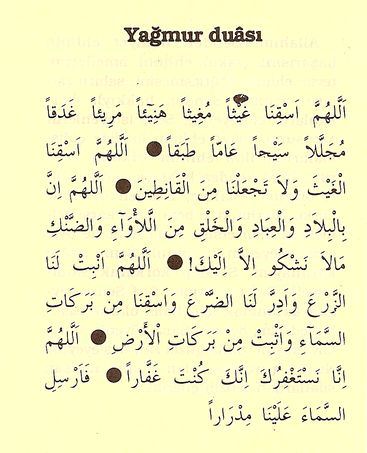 Yağmur duâsı
اَللّٰهُمَّ اَسْقِنَا غَيْثاً مُغِيثاً هَنِيٓئاً مَرِيئاً غَدَقاً
مُجَلَّلاً سَيْحاً عَامّاً طَبَقاً ● اَللّٰهُمَّ اَسْقِنَا
الْغَيْثَ وَلَا تَجْعَلْنَا مِنَ الْقَانِطِينَ ● اَللّٰهُمَّ اِنَّ
بِالْبِلَادِ وَالْعِبَادِ وَالْخَلْقِ مِنَ اللَّأْوَآءِ وَالضَّنْكِ
مَالَا نَشْكُو اِلَّا اِلَيْكَ! ● اَللّٰهُمَّ اَنْبِتْ لَنَا
الزَّرْعَ وَاَدِرَّ لَنَا الضَّرْعَ وَاَسْقِنَا مِنْ بَرَكَاتِ
السَّمَآءِ وَاَنْبِتْ مِنْ بَرَكَاتِ الْاَرْضِ ● اَللّٰهُمَّ
اِنَّا نَسْتَغْفِرُكَ اِنَّكَ كُنْتَ غَفَّاراً ● فَاَرْسِلِ
السَّمَاءَ عَلَيْنَا مِدْرَاراً